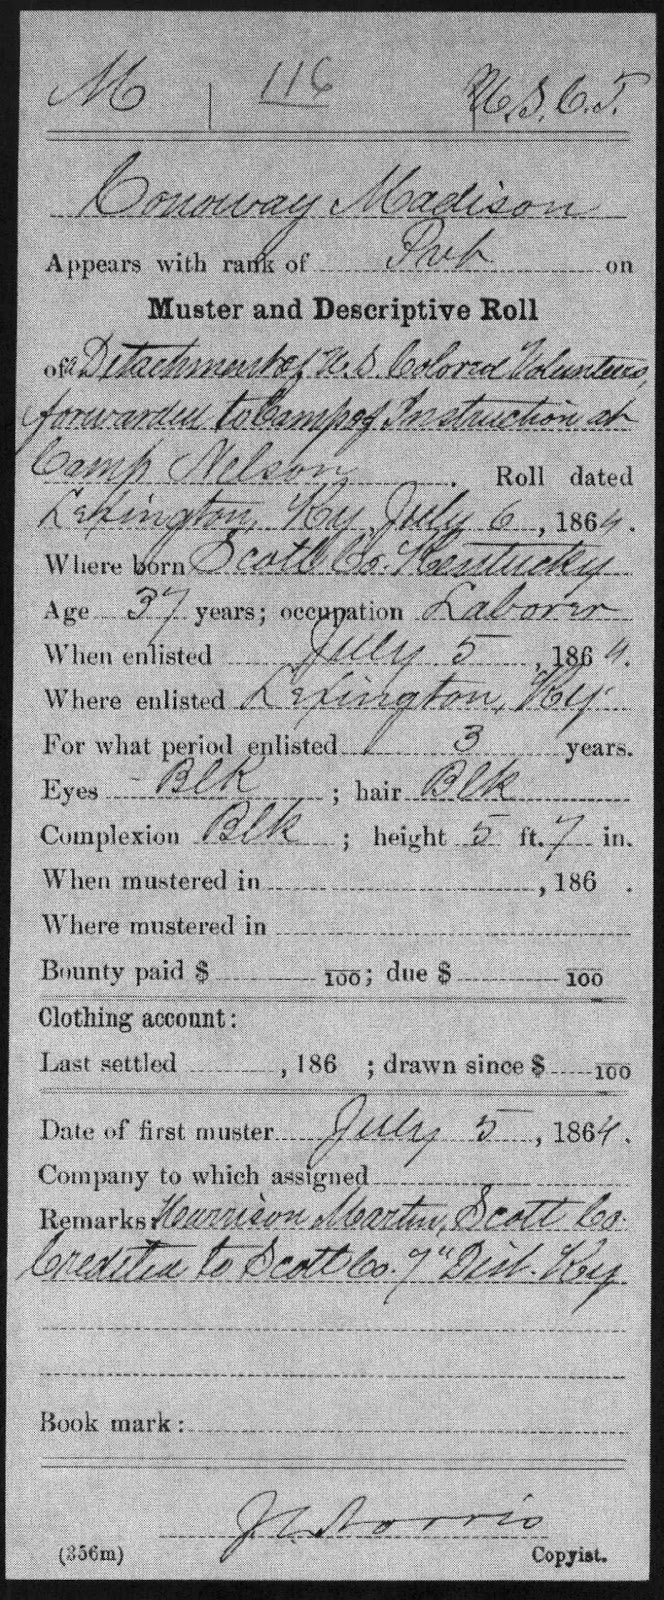 M | 116 | U.S.C.T.
Conoway Madison
Appears with rank of Pvt on
Muster and Descriptive Roll
of a Detachment of U.S. Colored Volunteers,
forwarded to Camp of Instruction at
Camp Nelson. Roll dated
Lexington, Ky. July 6, 1864.
Where born Scott Co. Kentucky
Age 37 years; occupation Laborer
When enlisted July 5, 1864.
Where enlisted Lexington, Ky.
For what period enlisted 3 years.
Eyes Blk; hair Blk
Complexion Blk; height 5 ft. 7 in.
When mustered in , 186 .
Where mustered in
Bounty paid $ 100; due $ 100
Clothing account:
Last settled , 186 ; drawn since $ 100
Date of first muster July 5, 1864.
Company to which assigned
Remarks: Harrison Martin, Scott Co.
Credited to Scott Co. 7" Dist. Ky
Book mark:
Norris
(356m) Copyist.